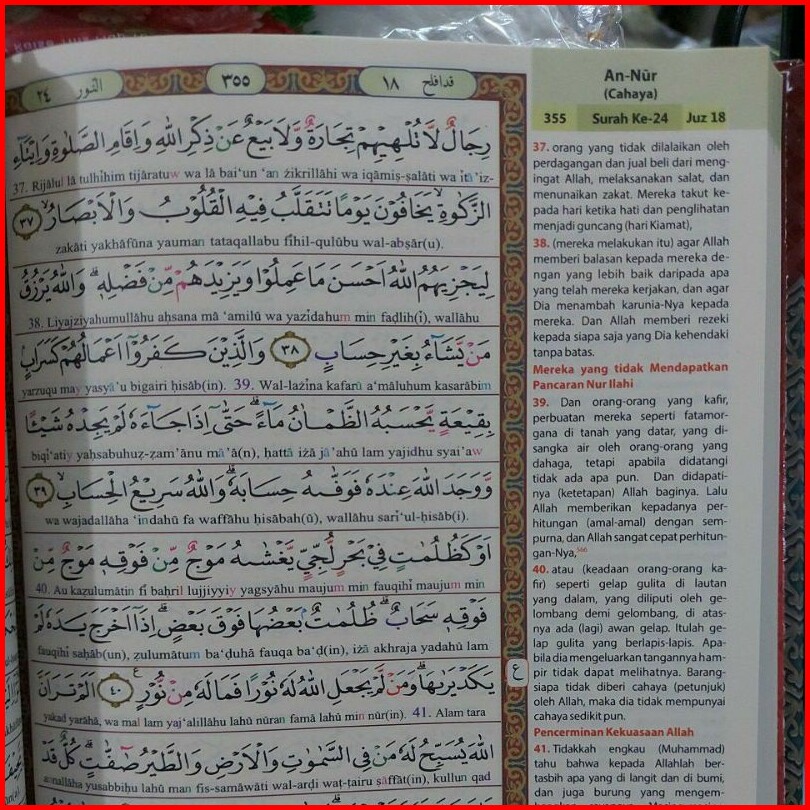 النور ٢٤
٣٥٥
قدافلح ١٨
رِجَالٌ لَّا تُلْهِيْهِمْ تِجَارَةٌ وَّلَا بَيْعٌ عَنْ ذِكْرِ اللّٰهِ وَاِقَامِ الصَّلٰوةِ وَاِيْتَاۤءِ
37. Rijālul lā tulhīhim tijāratuw wa lā bai‘un ‘an żikrillāhi wa iqāmiṣ-ṣalāti wa ītā'iz-
الزَّكٰوةِ ۙيَخَافُوْنَ يَوْمًا تَتَقَلَّبُ فِيْهِ الْقُلُوْبُ وَالْاَبْصَارُ ۙ ٣٧
zakāti yakhāfūna yauman tataqallabu fīhil-qulūbu wal-abṣār(u).
لِيَجْزِيَهُمُ اللّٰهُ اَحْسَنَ مَا عَمِلُوْا وَيَزِيْدَهُمْ مِّنْ فَضْلِهٖۗ وَاللّٰهُ يَرْزُقُ
38. Liyajziyahumullāhu aḥsana mā ‘amilū wa yazīdahum min faḍlih(ī), wallāhu
مَنْ يَّشَاۤءُ بِغَيْرِ حِسَابٍ ٣٨ وَالَّذِيْنَ كَفَرُوْٓا اَعْمَالُهُمْ كَسَرَابٍۢ
yarzuqu may yasyā'u bigairi ḥisāb(in). 39. Wal-lażīna kafarū a‘māluhum kasarābim
بِقِيْعَةٍ يَّحْسَبُهُ الظَّمْاٰنُ مَاۤءًۗ حَتّٰىٓ اِذَا جَاۤءَهٗ لَمْ يَجِدْهُ شَيْـًٔا
biqī‘atiy yaḥsabuhuẓ-ẓam'ānu mā'ā(n), ḥattā iżā jā'ahū lam yajidhu syai'aw
وَّوَجَدَ اللّٰهَ عِنْدَهٗ فَوَفّٰىهُ حِسَابَهٗ ۗوَاللّٰهُ سَرِيْعُ الْحِسَابِ ۙ ٣٩
wa wajadallāha ‘indahū fa waffāhu ḥisābah(ū), wallāhu sarī‘ul-ḥisāb(i).
اَوْ كَظُلُمٰتٍ فِيْ بَحْرٍ لُّجِّيٍّ يَّغْشٰىهُ مَوْجٌ مِّنْ فَوْقِهٖ مَوْجٌ مِّنْ
40. Au kaẓulumātin fī baḥril lujjiyyiy yagsyāhu maujum min fauqihī maujum min
فَوْقِهٖ سَحَابٌۗ ظُلُمٰتٌۢ بَعْضُهَا فَوْقَ بَعْضٍۗ اِذَآ اَخْرَجَ يَدَهٗ لَمْ
fauqihī saḥāb(un), ẓulumātum ba‘ḍuhā fauqa ba‘ḍ(in), iżā akhraja yadahū lam
يَكَدْ يَرٰىهَاۗ وَمَنْ لَّمْ يَجْعَلِ اللّٰهُ لَهٗ نُوْرًا فَمَا لَهٗ مِنْ نُّوْرٍ ٤٠ اَلَمْ تَرَ اَنَّ
yakad yarāhā, wa mal lam yaj‘alillāhu lahū nūran famā lahū min nūr(in). 41. Alam tara
اللّٰهَ يُسَبِّحُ لَهٗ مَنْ فِى السَّمٰوٰتِ وَالْاَرْضِ وَالطَّيْرُ صٰۤفّٰتٍۗ كُلٌّ قَدْ
annallāha yusabbiḥu lahū man fis-samāwāti wal-arḍi waṭ-ṭairu ṣāffāt(in), kullun qad
ع
An-Nūr
(Cahaya)
355 Surah Ke-24 Juz 18
37. orang yang tidak dilalaikan oleh
perdagangan dan jual beli dari meng-
ingat Allah, melaksanakan salat, dan
menunaikan zakat. Mereka takut ke-
pada hari ketika hati dan penglihatan
menjadi guncang (hari Kiamat),
38. (mereka melakukan itu) agar Allah
memberi balasan kepada mereka de-
ngan yang lebih baik daripada apa
yang telah mereka kerjakan, dan agar
Dia menambah karunia-Nya kepada
mereka. Dan Allah memberi rezeki
kepada siapa saja yang Dia kehendaki
tanpa batas.
Mereka yang tidak Mendapatkan
Pancaran Nur Ilahi
39. Dan orang-orang yang kafir,
perbuatan mereka seperti fatamor-
gana di tanah yang datar, yang di-
sangka air oleh orang-orang yang
dahaga, tetapi apabila didatangi
tidak ada apa pun. Dan didapati-
nya (ketetapan) Allah baginya. Lalu
Allah memberikan kepadanya per-
hitungan (amal-amal) dengan sem-
purna, dan Allah sangat cepat perhitun-
gan-Nya,
40. atau (keadaan orang-orang ka-
fir) seperti gelap gulita di lautan
yang dalam, yang diliputi oleh ge-
lombang demi gelombang, di atas-
nya ada (lagi) awan gelap. Itulah ge-
lap gulita yang berlapis-lapis. Apa-
bila dia mengeluarkan tangannya ham-
pir tidak dapat melihatnya. Barang-
siapa tidak diberi cahaya (petunjuk)
oleh Allah, maka dia tidak mempunyai
cahaya sedikit pun.
Pencerminan Kekuasaan Allah
41. Tidakkah engkau (Muhammad)
tahu bahwa kepada Allahlah ber-
tasbih apa yang di langit dan di bumi,
dan juga burung yang mengem-